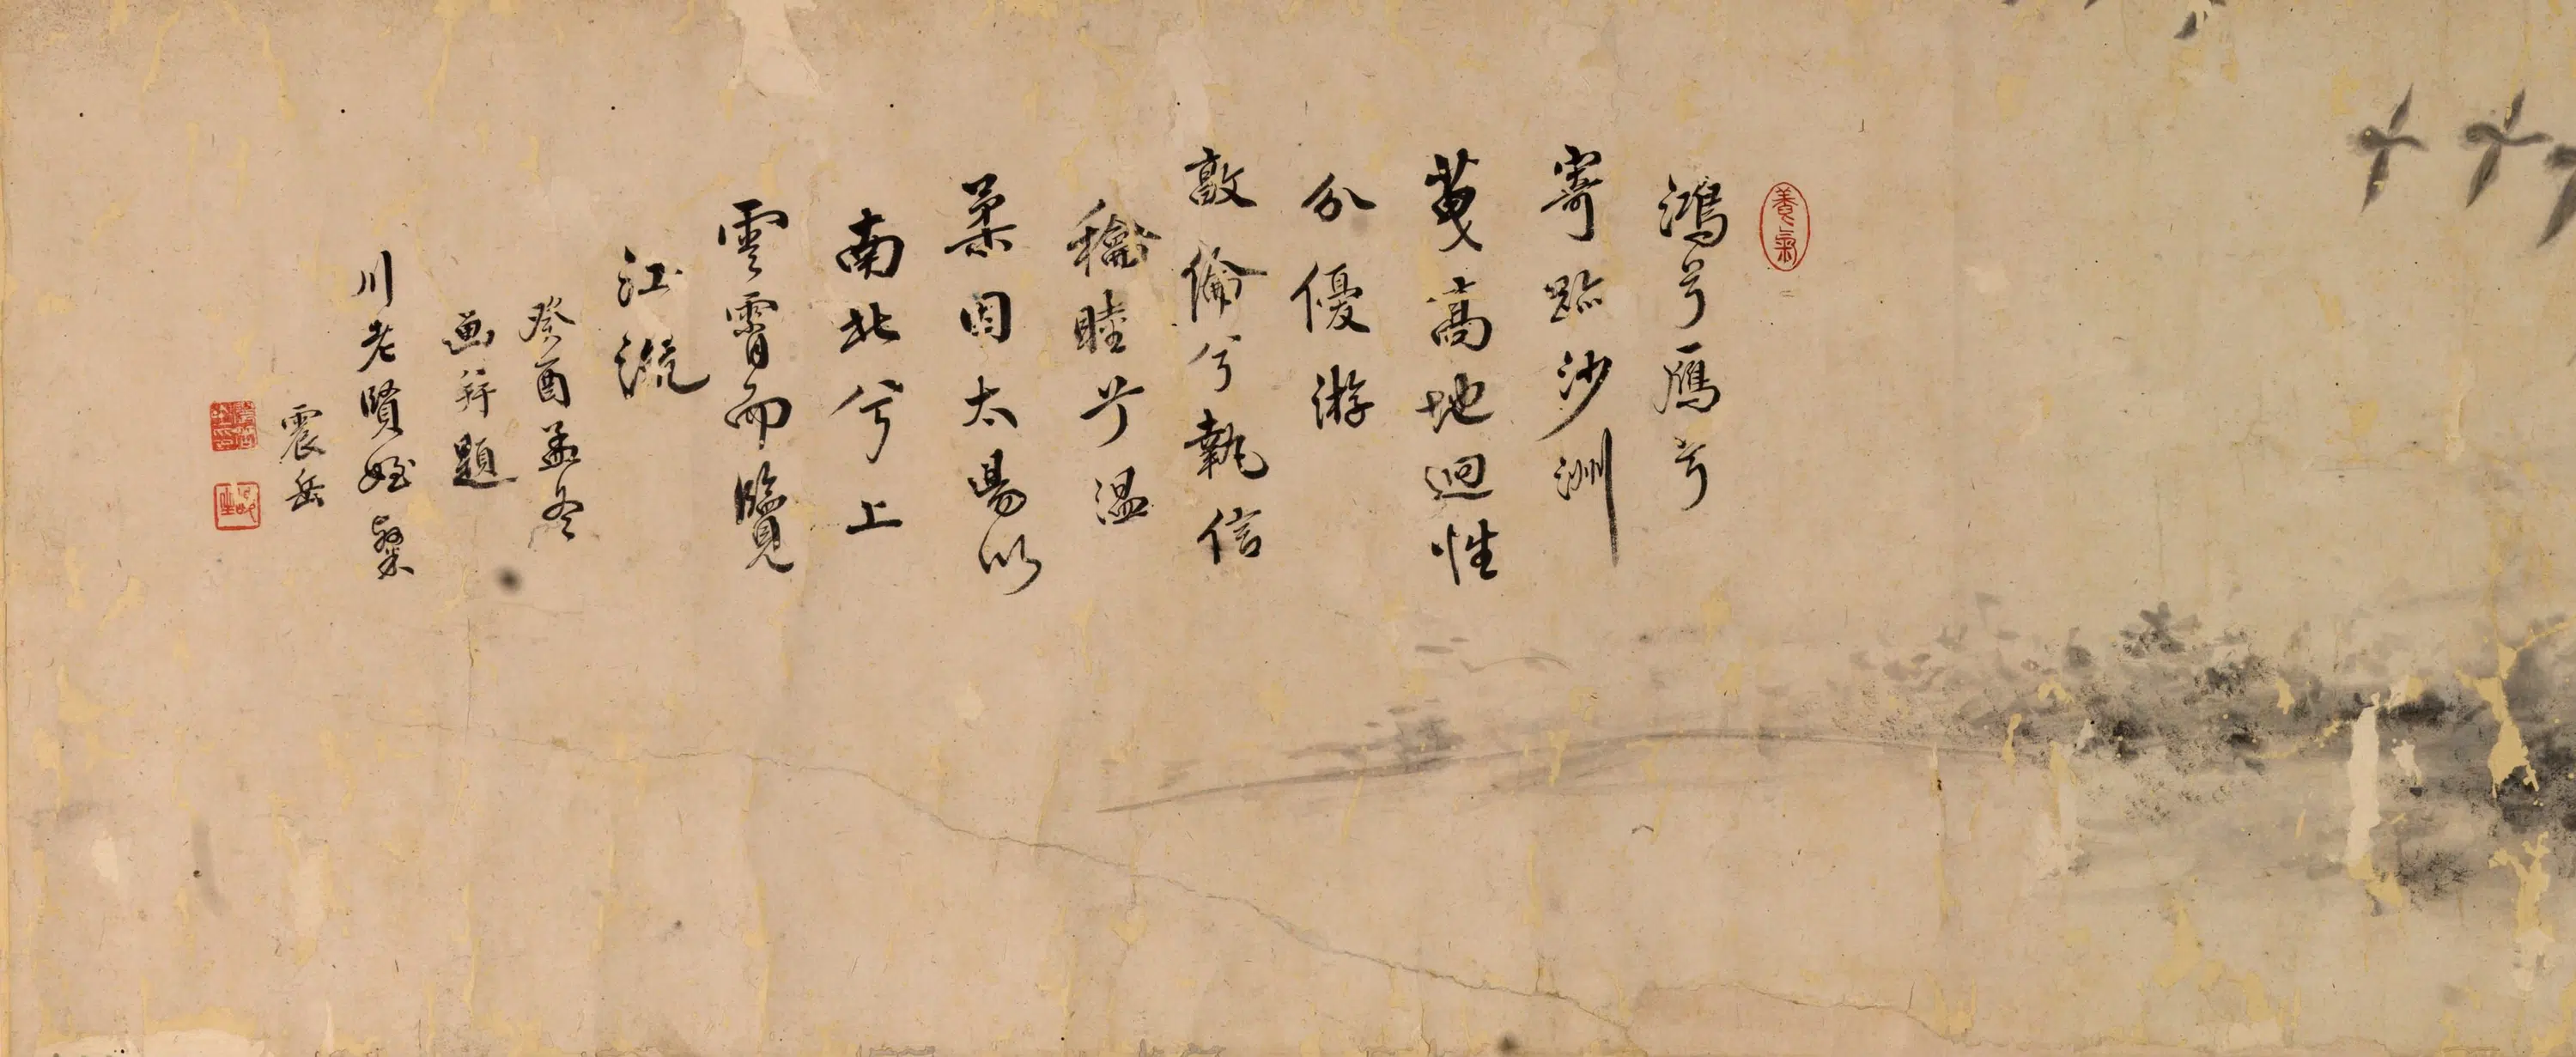 養氣
鴻兮雁兮
寄跡沙洲
蒦高地迥性
分優游
敦倫兮執信
穐睦兮溫
柔因太陽以
南北兮上
雲霄而覽
江
癸酉孟冬
画并題
川老賢姪粲
震岳